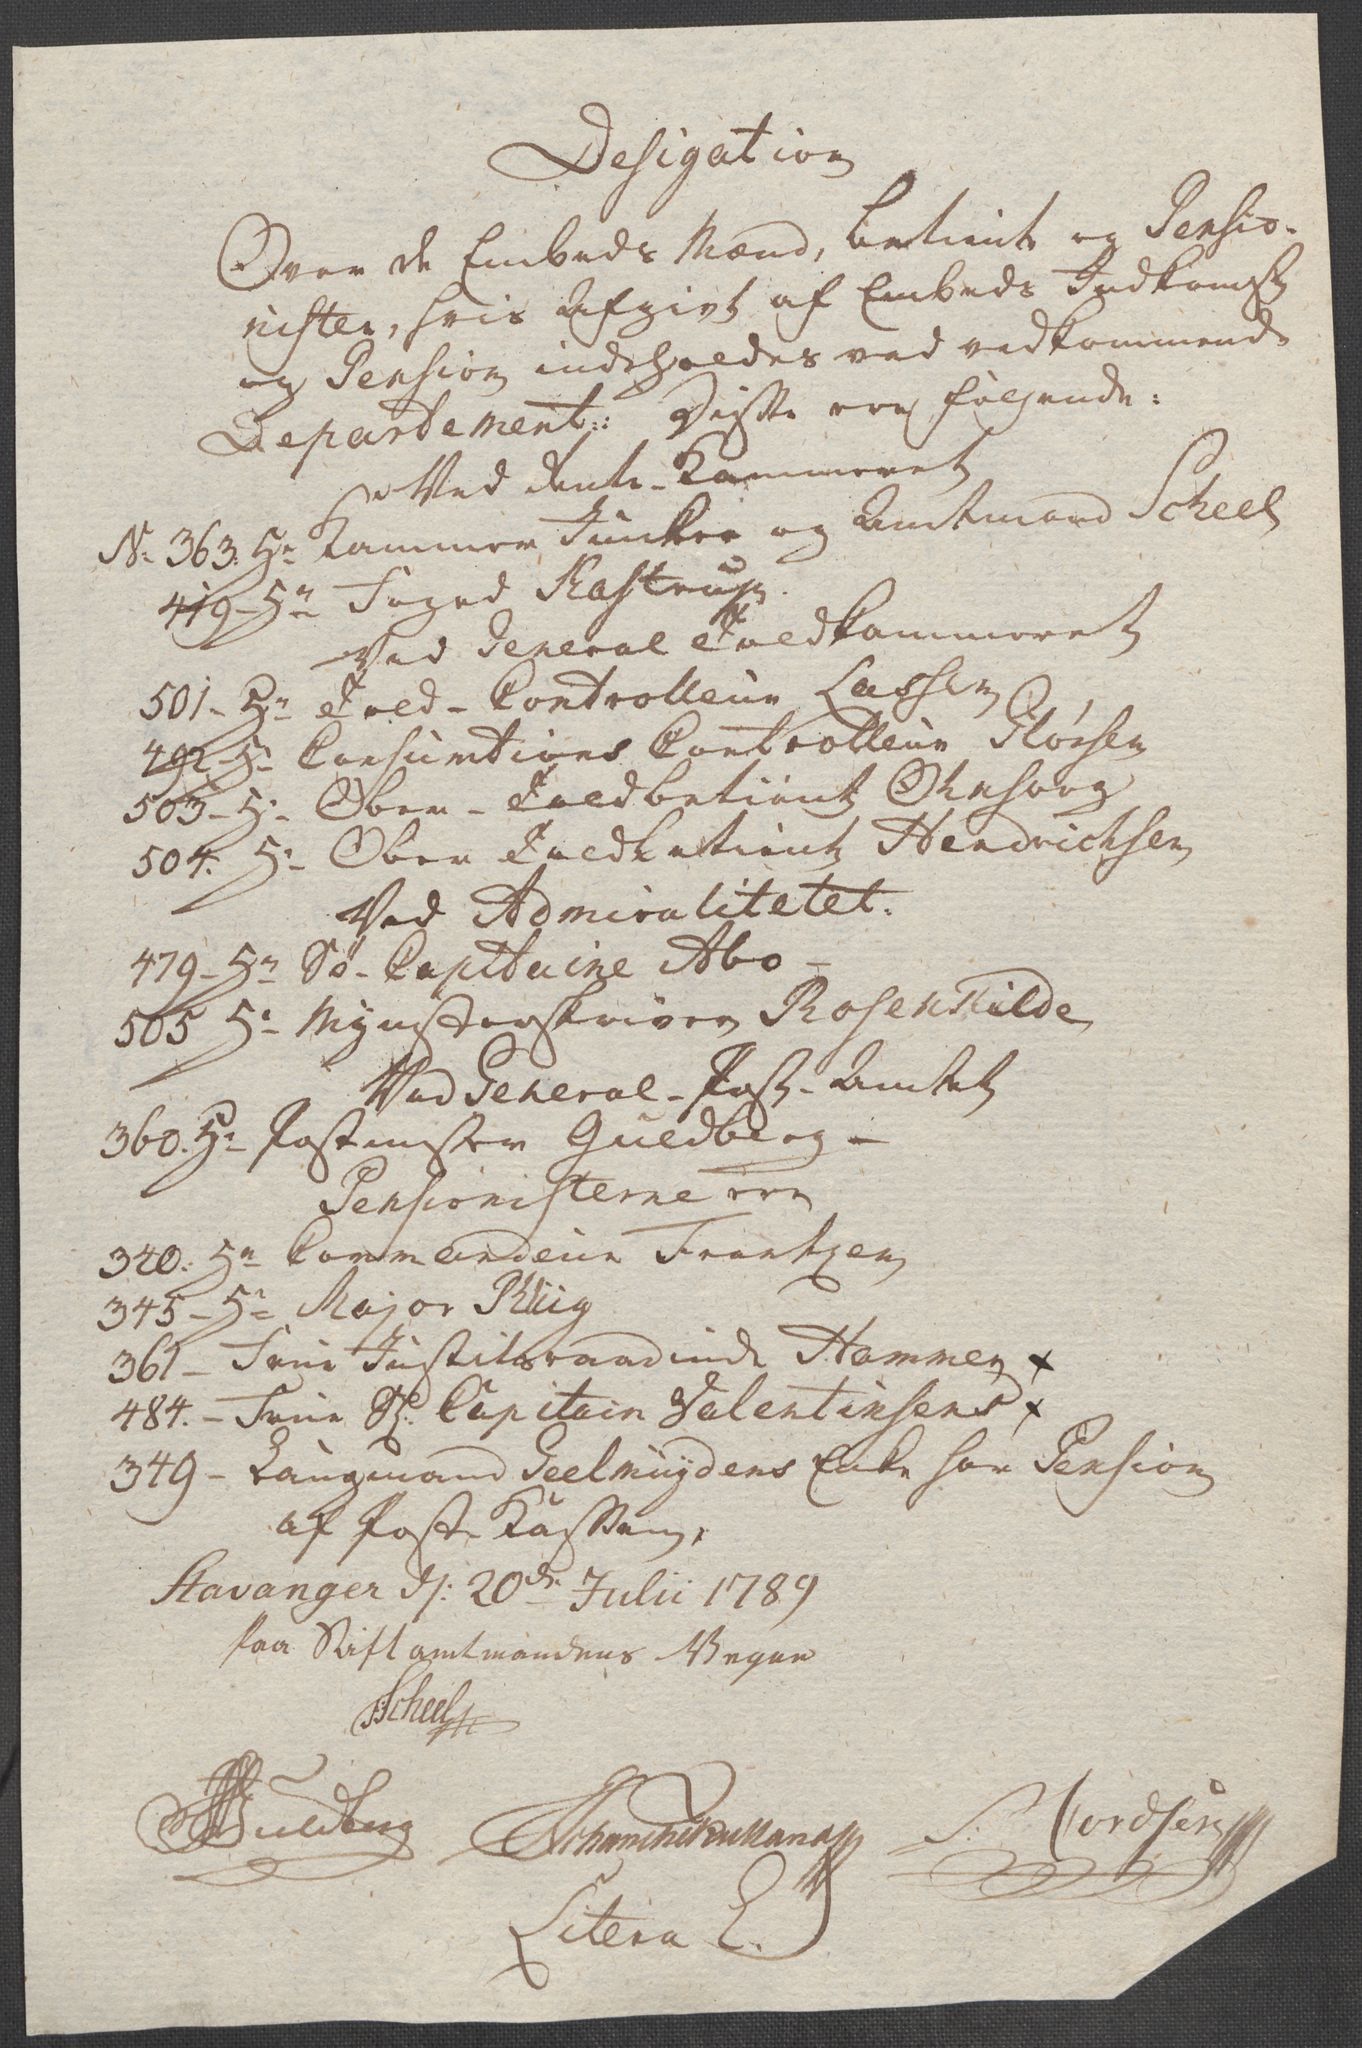 Desigation
Over de Embeds Mænd, betiente og Pensio-
nister, hvis Afgivt af Embeds Indkomst
og Pension indeholdes ved vedkommende
Departement: Disse ere følgende:
Ved Rente-Kammeret
N: 363. Hr Kammer Junker og Amtmand Scheel
419- Hr Foged Kastrup.
Ved General Toldkammeret
501- Hr Told-Controlleur Lassen
492- Hr Consumtions Controlleur Flørsen
503- Hr Ober-Toldbetient Ohnsorg
504. Hr Ober Toldbetient Hendrichsen
Ved Admiralitetet.
479- Hr Sø-Capitaine Abo-
505 Hr Mynsterskriver Rosenkilde
Ved General-Post-Amtet
360. Hr Postmester Guldberg-
Pensionisterne ere
340. Hr Commandeur Frantzen
345- Hr Major Klüg
361- Frue Justitsraadinde Hammer x
484.- Frue Sl. Capitain Valentinsens x
349- Laugmand Geelmuydens Enke har Pension
af Post-Kassen.
Stavanger d: 20de Julii 1789
Paa Stiftamtmandens Vegne
Scheel
Guldberg
S. Nordsen
Litera E.